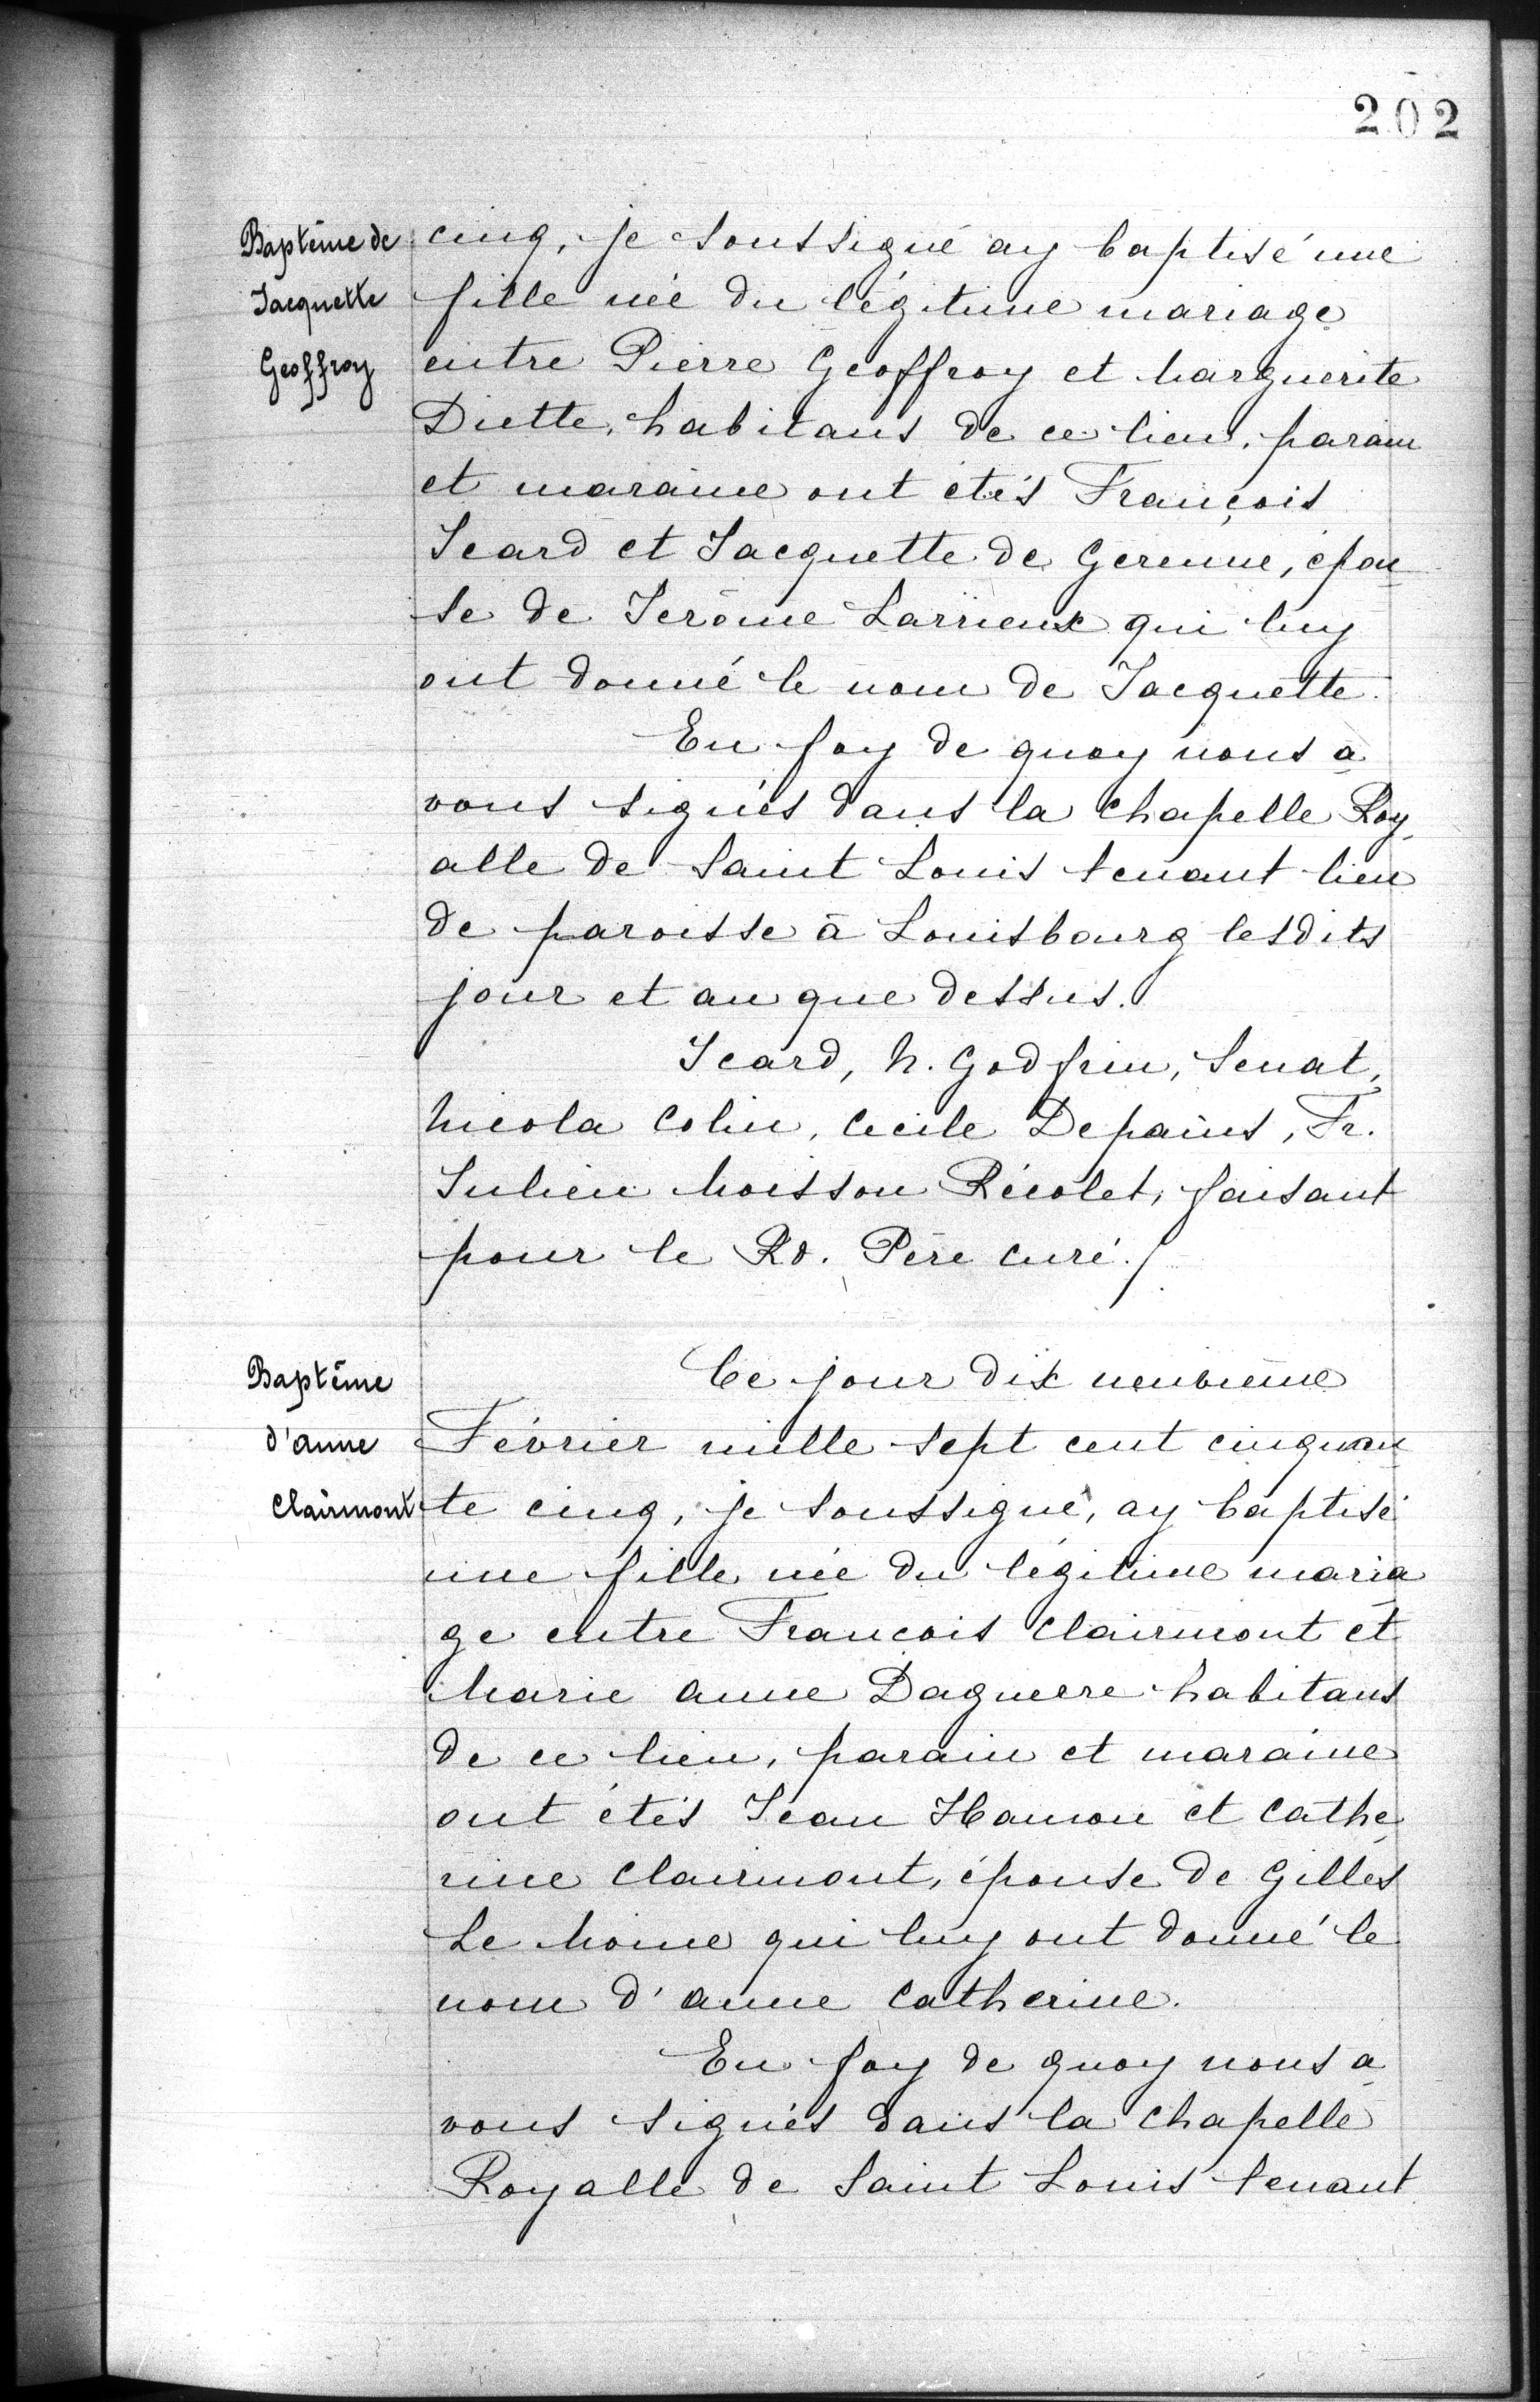 202
Baptême de
Jacquette
Geoffroy
cinq, je soussigné ay baptisé une
fille née du légitime mariage
entre Pierre Geoffroy et Marguerite
Diette, habitans de ce lieu, parain
et maraine ont étés François
Icard et Jacquette de Gerenne, épou
se de Jerôme Larrieux qui luy
ont donné le nom de Jacquette.
En foy de quoy nous a
vons signés dans la chapelle Roy
alle de Saint Louis tenant lieu
de paroisse à Louisbourg lesdits
jour et an que dessus.
Icard, N. Godfrin, Senat,
Nicola Colin, Cecile Depains, Fr.
Julien Moisson Récolet, faisant
pour le Rd. Père curé./
Baptême
d'anne
Clairmont
Ce jour dix neuvième
Février mille sept cent cinquan
te cinq, je soussigné, ay baptisé
une fille née du légitime maria
ge entre Francois Clairmont et
Marie anne Daguerre habitans
de ce lieu, parain et maraine
ont étés Jean Hamon et Cathe
rine Clairmont, épouse de Gilles
Le Moine qui luy ont donné le
nom d'anne Catherine.
En foy de quoy nous a
vons signés dans la chapelle
Royalle de Saint Louis tenant